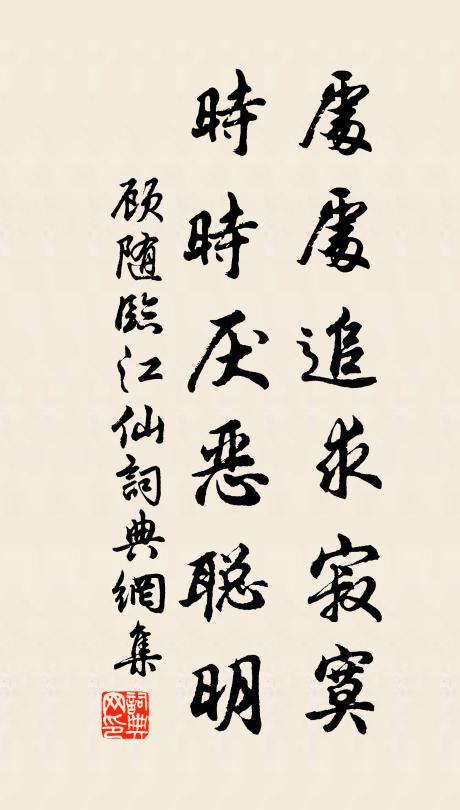 處處追求寂寞
時時厌恶聪明
顾随臨江仙詞典網集
詞典網印